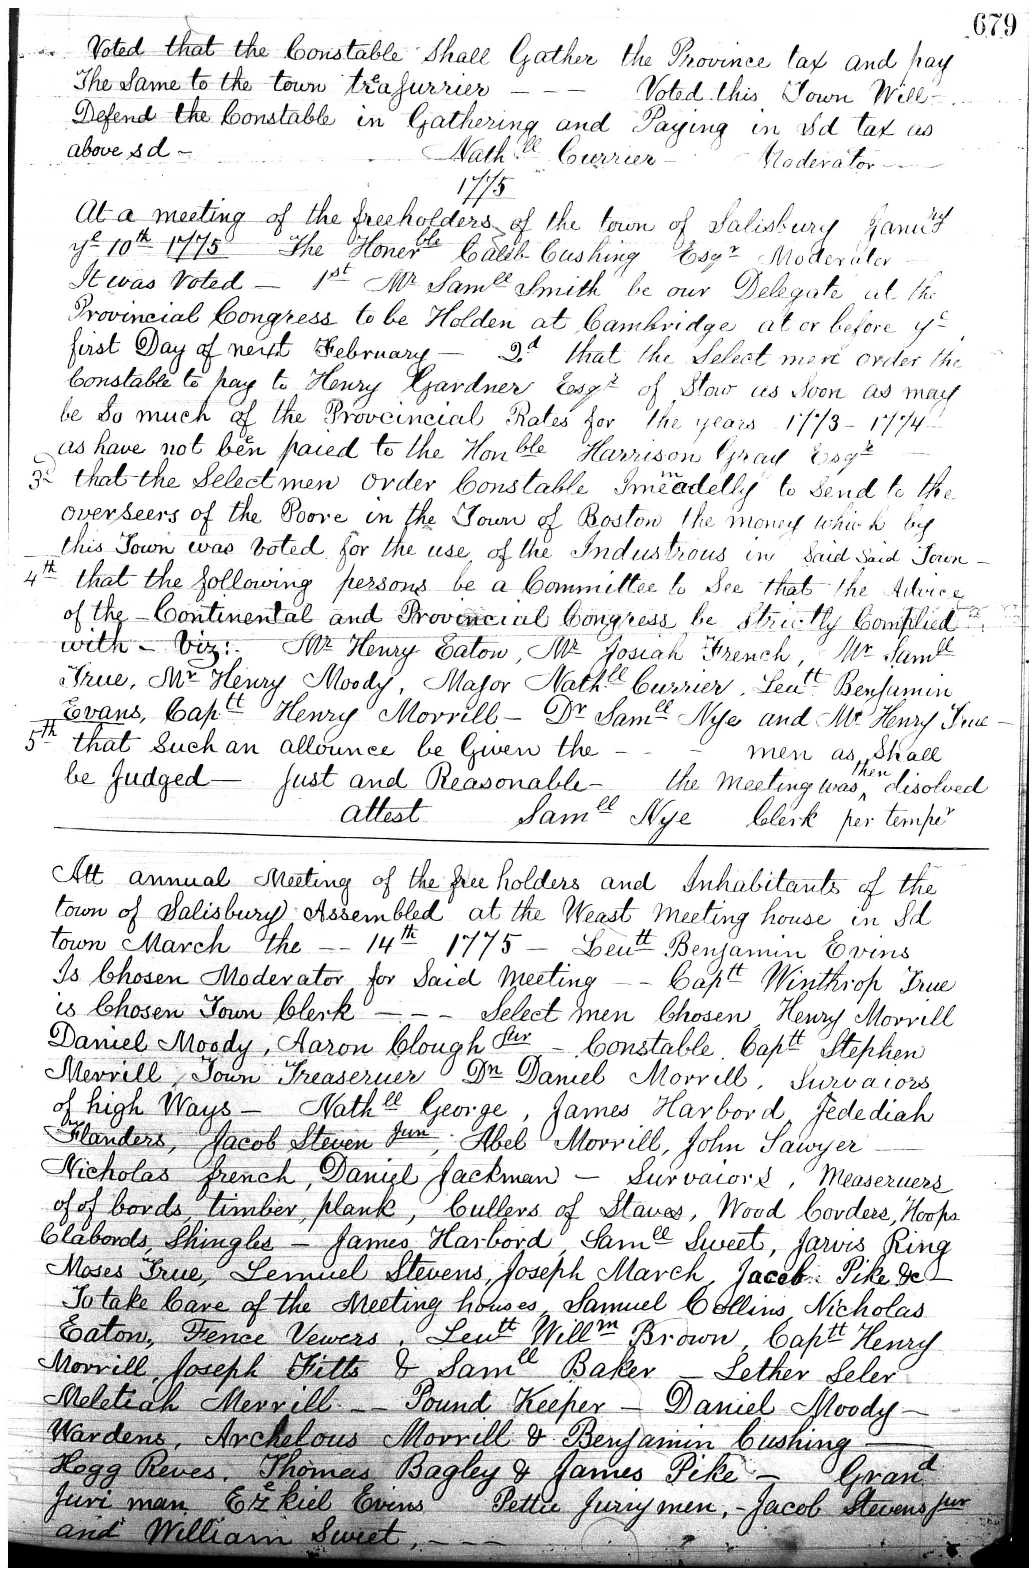 679
Voted that the Constable Shall Gather the Province tax and pay
The Same to the town treasurrier - - - Voted this Town Will -
Defend the Constable in Gathering and Paying in Sd tax as
above sd - Nathll Currier - Moderator -
1775
At a meeting of the freeholders of the town of Salisbury Janury
ye 10th 1775 The Honerble Caleb Cushing Esqr Moderator -
It was Voted - 1st Mr Samll Smith be our Delegate at the
Provincial Congress to be Holden at Cambridge at or before ye
first Day of next February - 2d that the Select men order the
Constable to pay to Henry Gardner Esqr of Stow as Soon as may
be So much of the Provcincial Rates for the years 1773 - 1774
as have not been paied to the Honble Harrison Gray Esqr
3d that the Selectmen order Constable Immeadelly to Send to the
overseers of the Poore in the Town of Boston the money which by
this Town was Voted for the use of the Industrous in Said Said Town -
4th that the following persons be a Committee to See that the Advice
of the - Continental and Provincial Congress be Strictly Complied
with - Viz: Mr Henry Eaton, Mr Josiah French, Mr Samll
True, Mr Henry Moody, Major Nathll Currier, Leutt Benjamin
Evans, Captt Henry Morrill - Dr Samll Nye and Mr Henry True -
5th that Such an allounce be Given the - - - men as Shall
be Judged - Just and Reasonable - the Meeting was then disolved
attest Samll Nye Clerk per temper
Att annual Meeting of the free holders and Inhabitants of the
town of Salisbury Assembled at the Weast meeting house in Sd
town March the -- 14th 1775 - Leutt Benjamin Evins
Is Chosen Moderator for Said Meeting -- Captt Winthrop True
is Chosen Town Clerk - - - Select men Chosen Henry Morrill
Daniel Moody, Aaron Clough Jur - Constable Captt Stephen
Merrill, Town Treaseruer Dn Daniel Morrill, Survaiors
of high Ways - Nathll George, James Harbord, Jedediah
Flanders, Jacob Steven Jun, Abel Morrill, John Sawyer -
Nicholas french, Daniel Jackman - Survaiors, Measeruers
of of bords, timber, plank, Cullers of Staves, Wood Corders, Hoops
Clabords, Shingles - James Harbord, Samll Sweet, Jarvis Ring
Moses True, Lemuel Stevens, Joseph March, Jaceb Pike &c -
To take Care of the Meeting houses, Samuel Collins Nicholas
Eaton, Fence Vewers, Leutt Willm Brown, Captt Henry
Morrill, Joseph Fitts & Samll Baker - Lether Seler
Meletiah Merrill -- Pound Keeper - Daniel Moody -
Wardens, Archelous Morrill & Benjamin Cushing -
Hogg Reves, Thomas Bagley & James Pike - Grand
Juri man Ezekiel Evins Pettie Jurrymen, - Jacob Stevens jur
and William Sweet, - - -